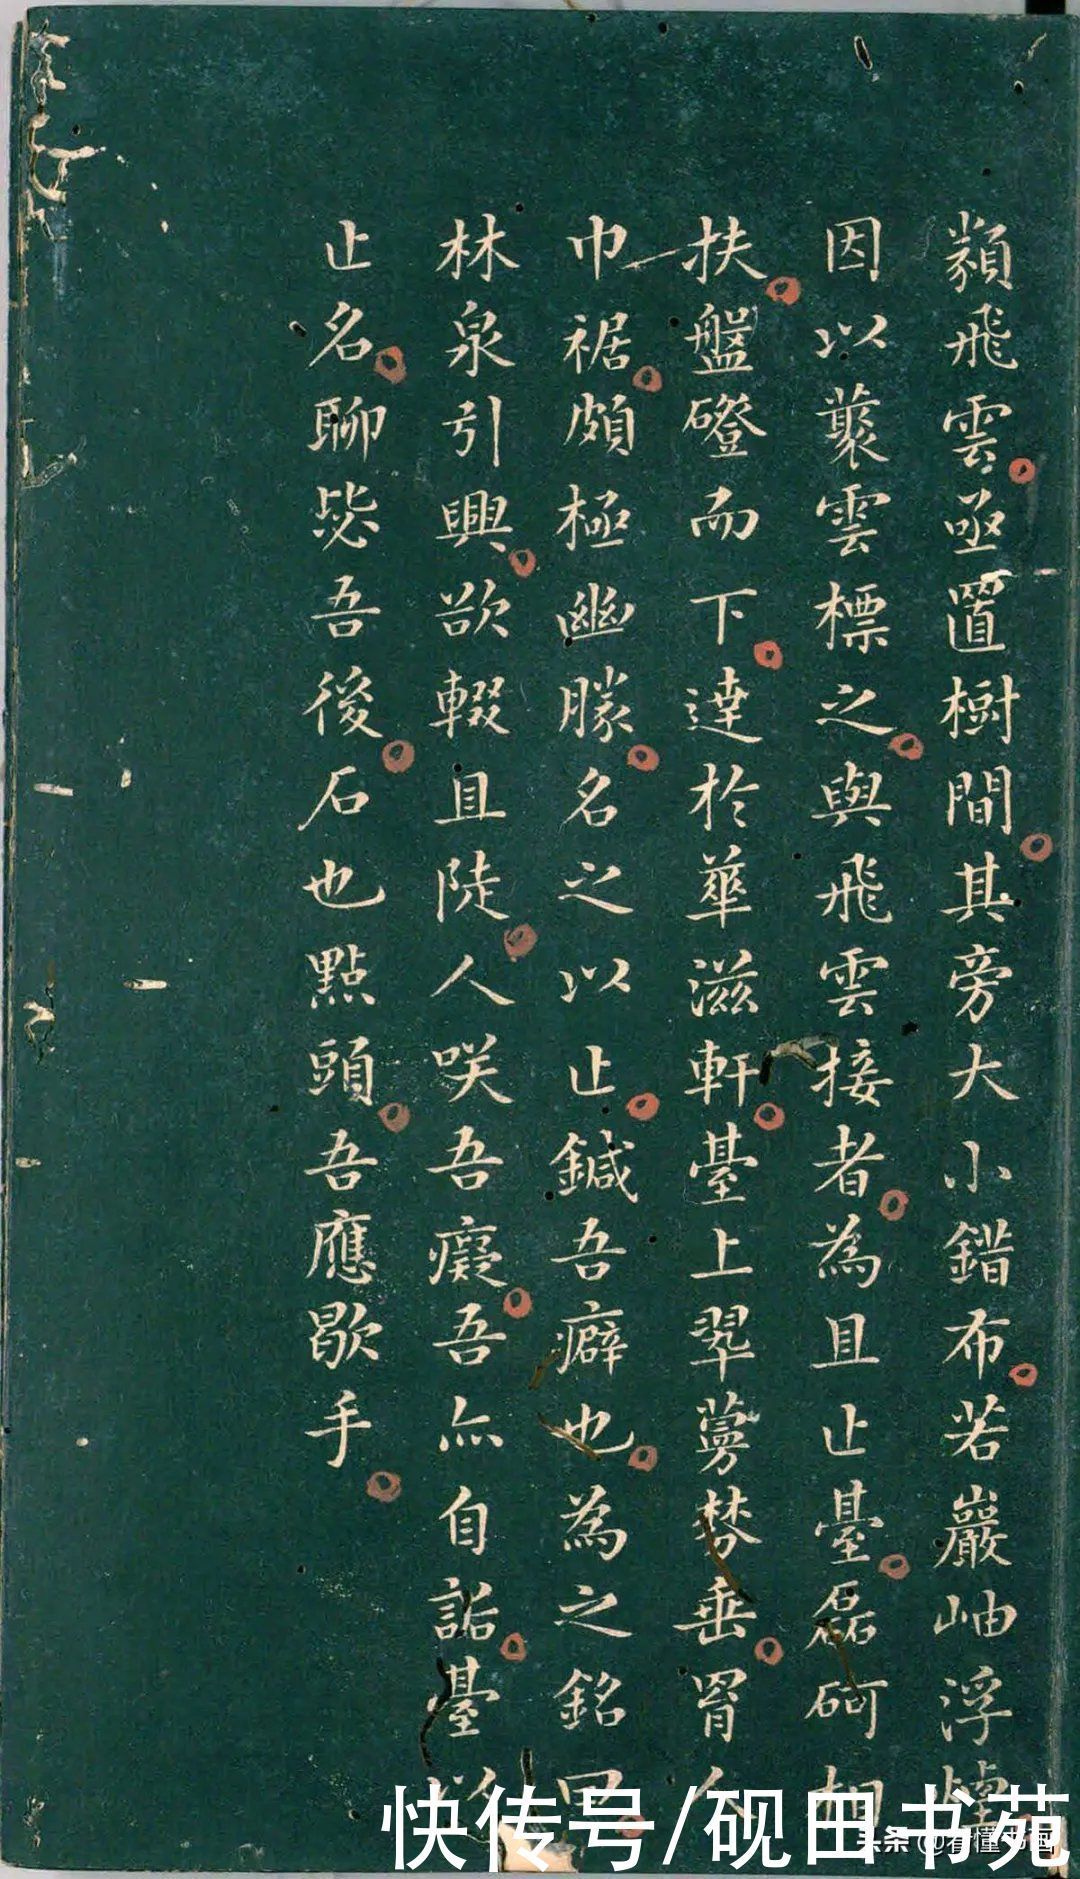 纇飛雲亟置樹間其旁大小錯布若巖岫浮
因以藂雲標之與飛雲接者為且止臺磊砢相
扶盤磴而下達於華滋軒臺上翠蔓棼垂罥人
巾裾頗極幽勝名之以止鍼吾癖也為之銘曰
林泉引興欲輟且陡人咲吾癡吾亦自詬臺以
止名聊毖吾後石也點頭吾應歇手
快传号/砚田书苑
头条 @看懂书画